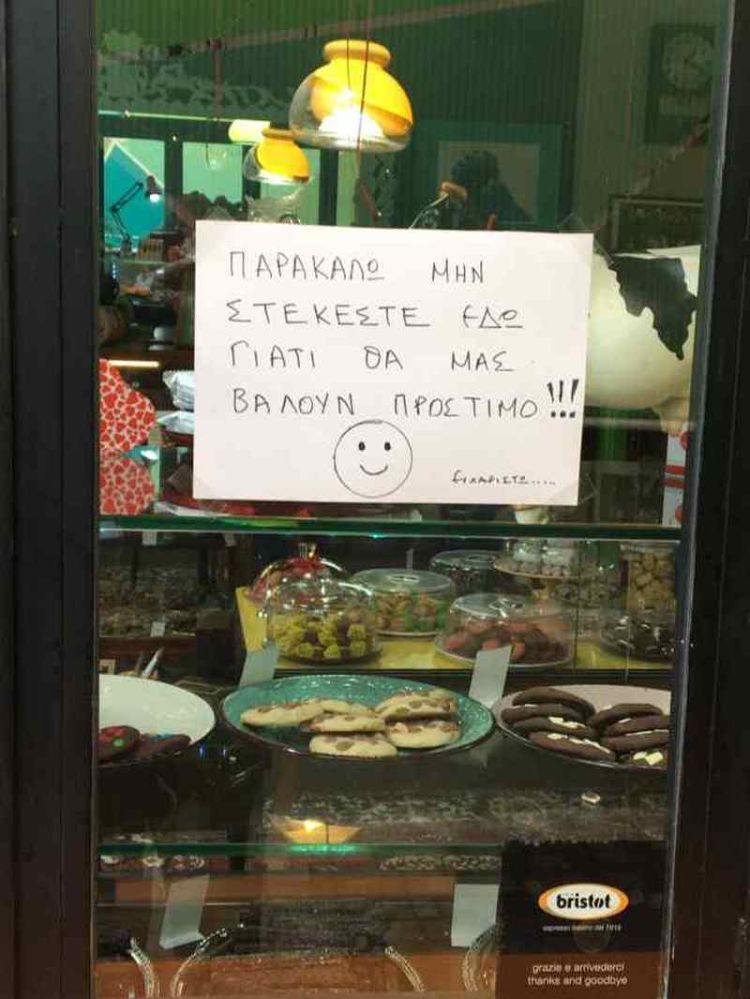 ΠΑΡΑΚΑΛΩ ΜΗΝ
ΣΤΕΚΕΣΤΕ ΕΔΩ
ΓΙΑΤΙ ΘΑ ΜΑΣ
ΒΑΛΟΥΝ ΠΡΟΣΤΙΜΟ!!!
ΕΥΧΑΡΙΣΤΩ.....
bristot
espresso italiano dal 1919
grazie e arrivederci
thanks and goodbye